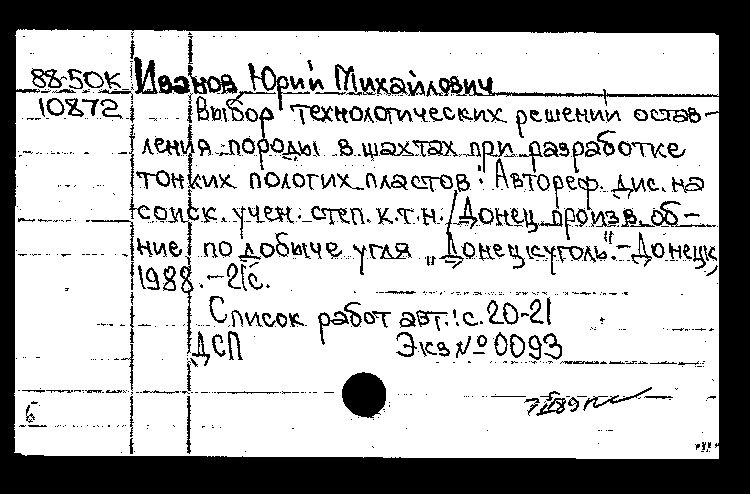 88-50К Иванов, Юрий Михайлович
10872 Выбор технологических решений остав-
ления породы в шахтах при разработке
тонких пологих пластов: Автореф. дис. на
соиск. учен. степ. к.т.н. / Донец. произв. об-
ние по добыче угля "Донецкуголь".-Донецк,
1988. - 21с.
Список работ авт.: с. 20-21
ДСП Экз № 0093
Б